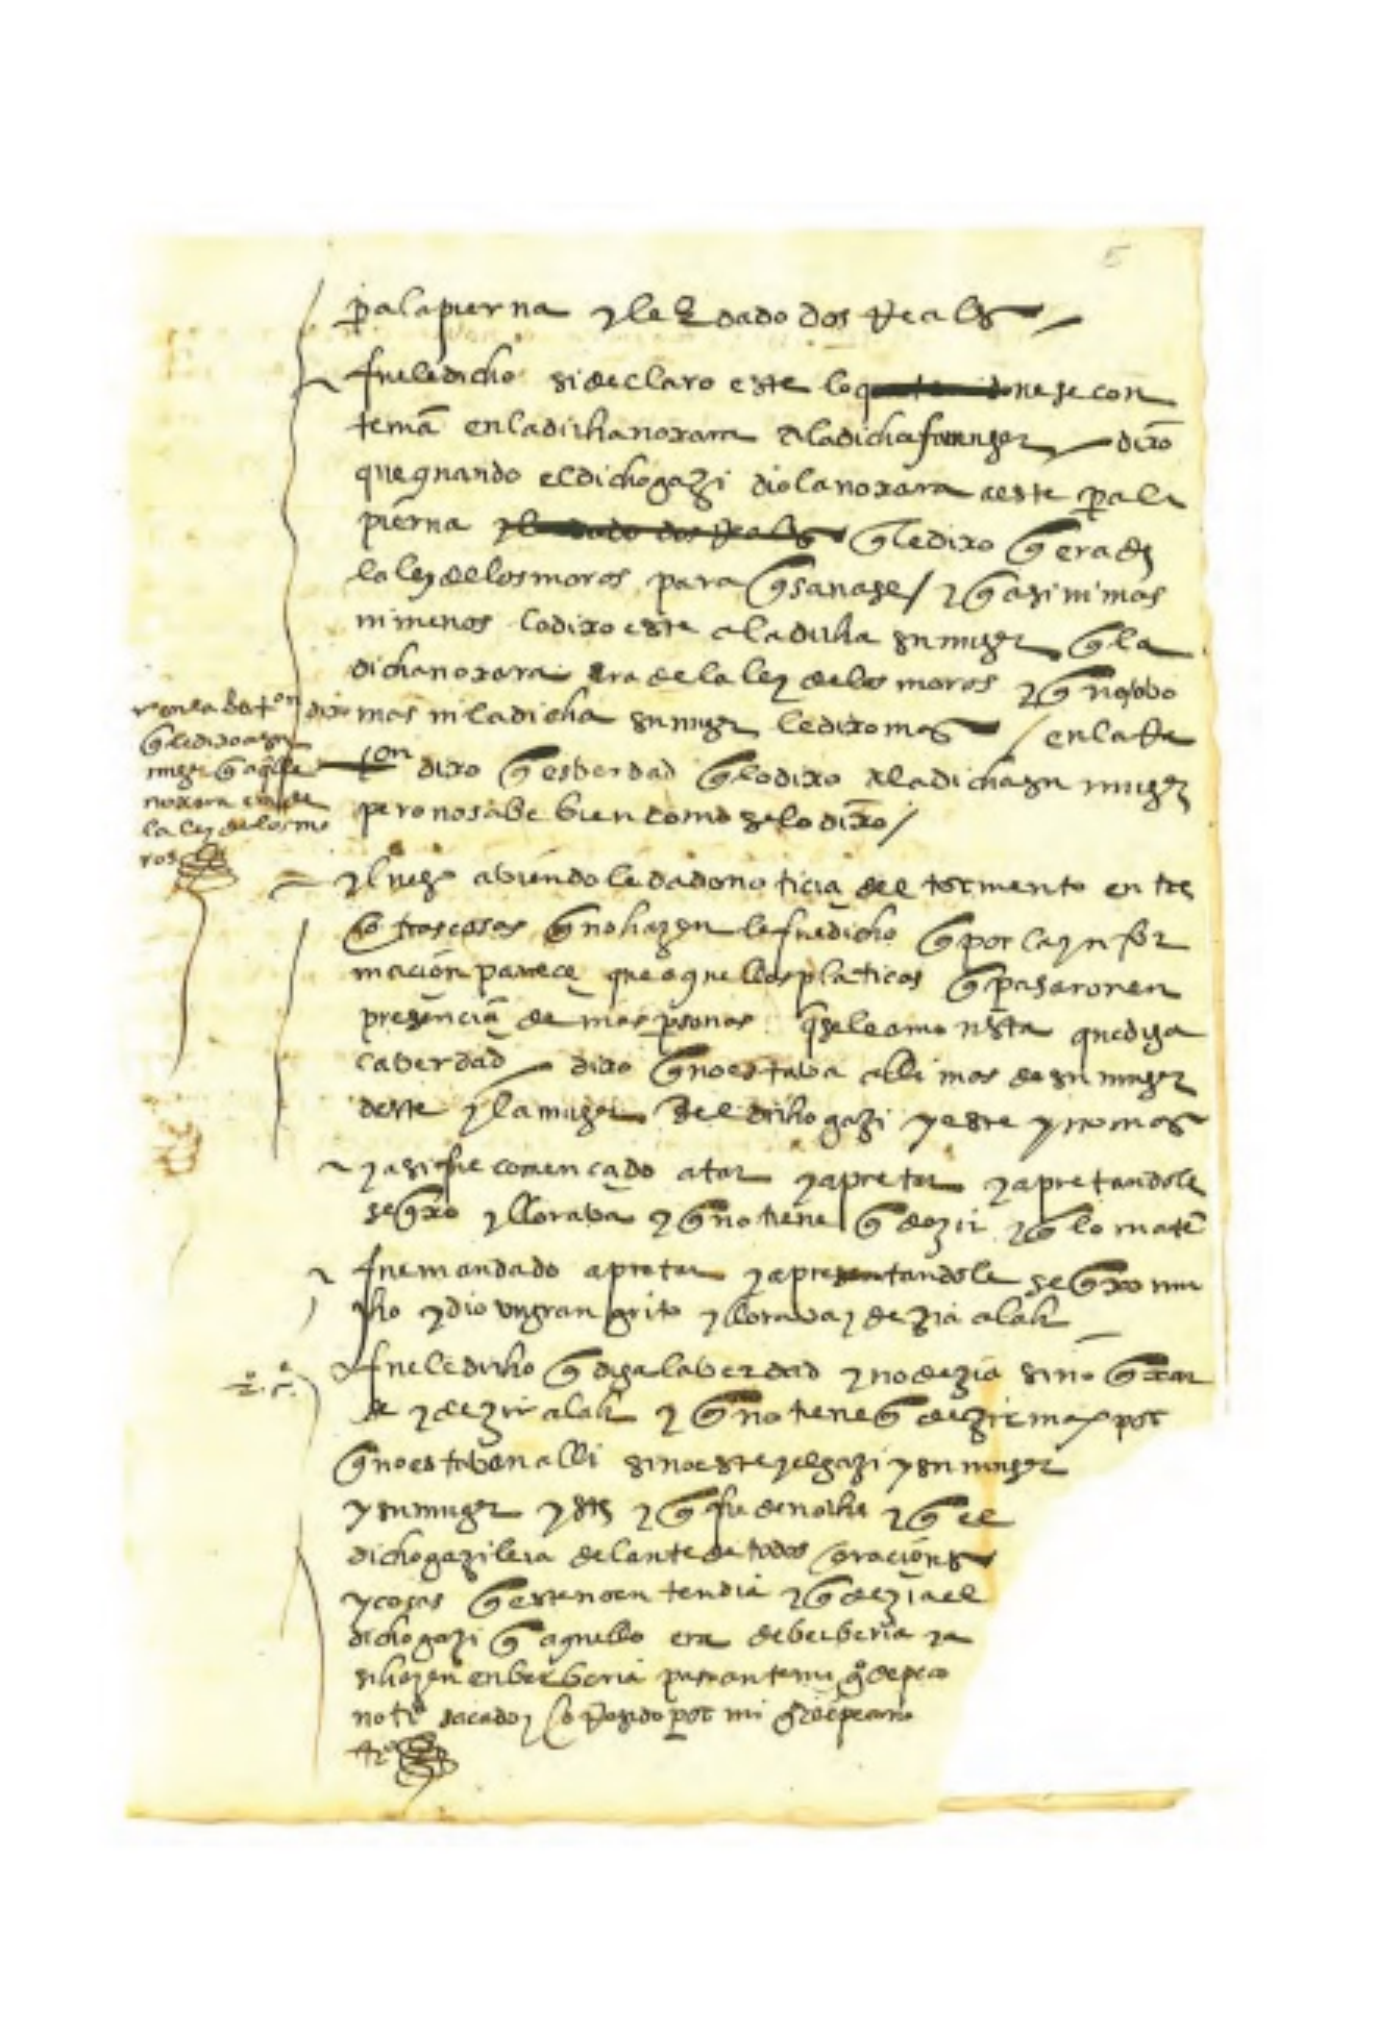 5
pa la pierna y le dado dos Reales
fuele dicho si declaro este lo que se con
tenia en la dicha noxara a la dicha su muger dixo
que quando el dicho gazi dio la noxara a este pa la
pierna y le dado dos Reales q le dixo q era de
la ley de los moros para q sanase / y q asi ni mas
ni menos lo dixo este a la dicha su muger q la
dicha noxara era de la ley de los moros y q no vbo
mas ni la dicha su muger le dixo mas / en la Ra
ton dixo q es berdad q lo dixo a la dicha su muger
pero no sabe bien como se lo dixo /
q le dixo a su
muger q aqlla
noxara era de
la ley de los mo
ros
y luego abiendole dado noticia del tormento en tes
q no hazen le fue dicho q por la ynfor
macion parece que aquellas platicas q pasaron en
presencia de mas psonas q se le amonesta que diga
la berdad dixo q no estaba alli mas de su muger
deste y la muger del dicho gazi y este y no mas
y asi fue començado atar y apretar y apretandole
se qxo y lloraba y q no tiene q dezir y q lo maten
fue mandado apretar y apretandole se qxo mu
cho y dio vn gran grito y lloraba y dezia alah
fuele dicho q diga la berdad y no dezia sino qxar
se y dezir alah y q no tiene q dezir mas por
q no estaban alli sino este y el gazi y su muger
y su muger y q fue de noche y q el
dicho gazi leia delante de todos oraciones
y cosas q este no entendia y q dezia el
dicho gazi q aquello era de berberia y a
si hazen en berberia paso ante mi go de peco
not sacado y por mi